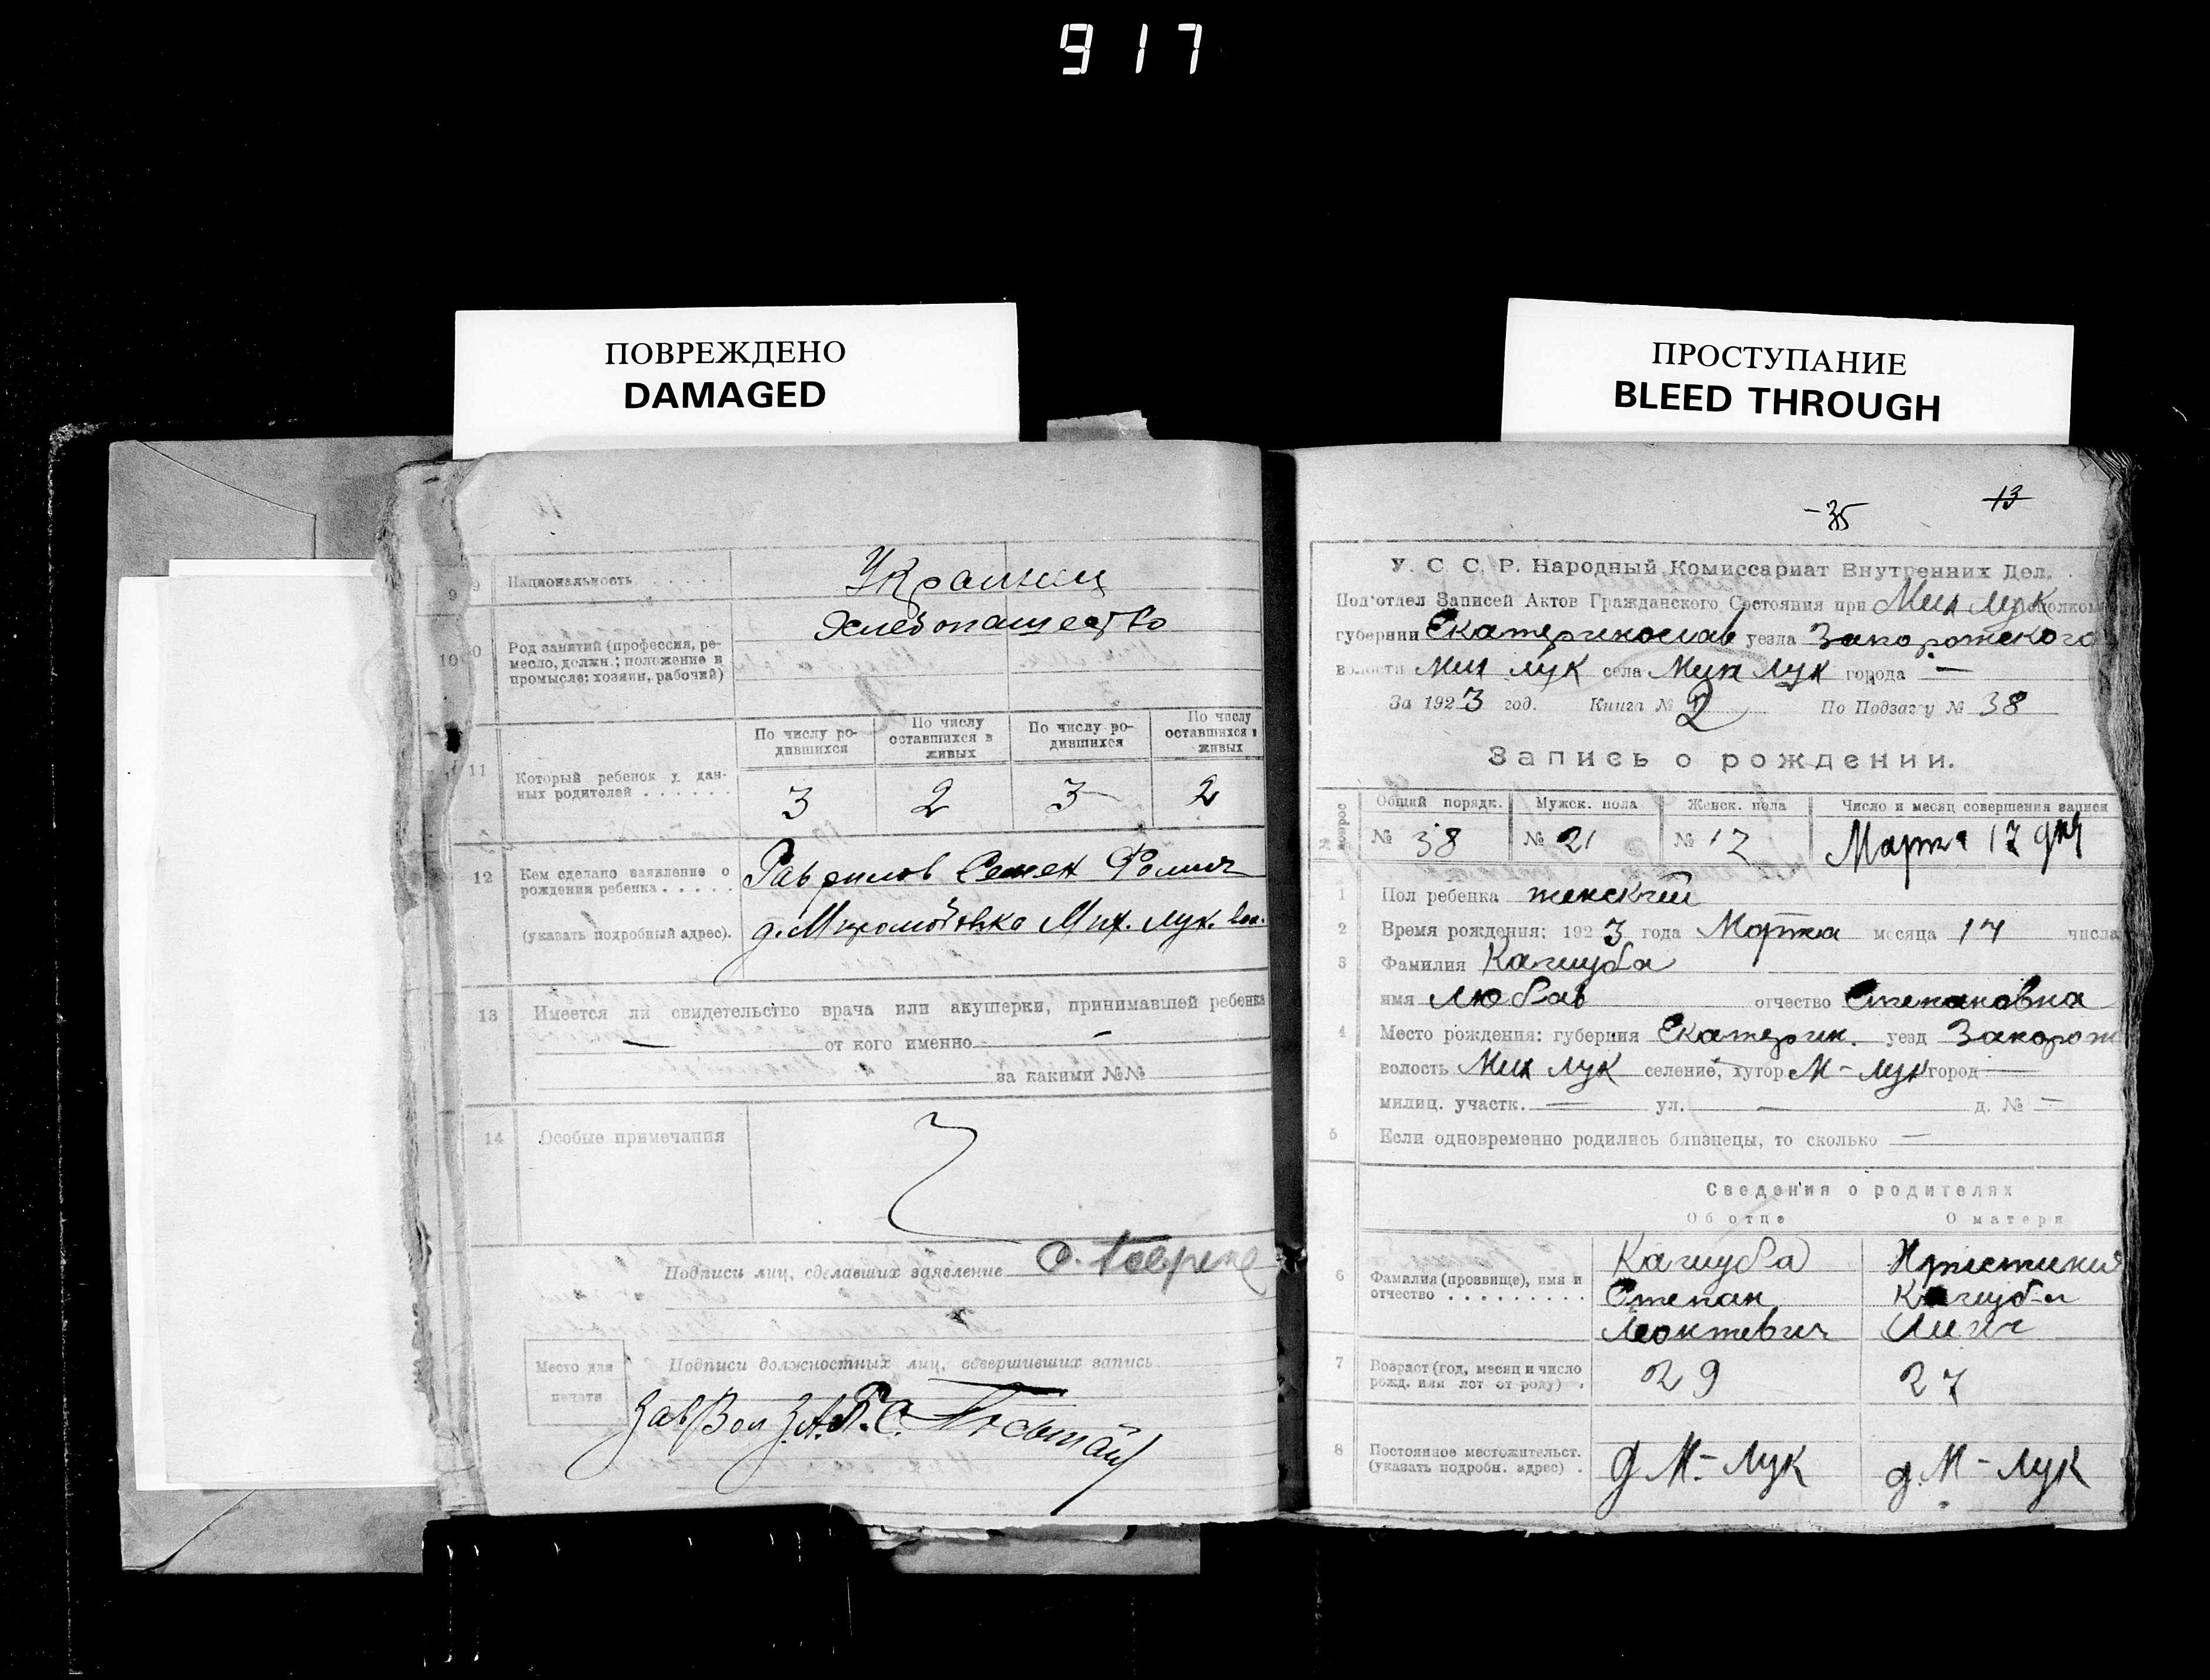 917
ПОВРЕЖДЕНО
DAMAGED
ПРОСТУПАНИЕ
BLEED THROUGH
9 9 Национальность . . . . . . Украинец
10 0 Род занятий (профессия, ре-
месло, должн.; положение в
промысле: хозяин, рабочий)
Хлебопашество
По числу ро-
дившихся
По числу
оставшихся в
живых
По числу ро-
дившихся
По числу
оставшихся в
живых
11 Который ребенок у дан-
ных родителей . . . . . . .
3 2 3 2
12 Кем сделано заявление о
рождении ребенка . . . . .
(указать подробный адрес).
Гаврилов Семен Фомич
д. Мих. Лук. вол.
13 Имеется ли свидетельство врача или акушерки, принимавшей ребенка
— от кого именно —
за какими №№
14 Особые примечания
Подписи лиц, сделавших заявление С.
Место для
печати
Подписи должностных лиц, совершивших запись
ЗавВол З.А.Г.С.
13
-35
У. С. С. Р. Народный Комиссариат Внутренних Дел.
Под'отдел Записей Актов Гражданского Состояния при Мих Лук
губернии Екатеринослав уезда Запорожского
волости Мих Лук села Мих Лук города —
За 1923 год. Книга № 2 По Подзагсу № 38
Запись о рождении.
Общий порядк. Мужск. пола Женск. пола Число и месяц совершения записи
№ 38 № 21 № 17 Марта 17 дня
1 Пол ребенка женский
2 Время рождения: 1923 года Марта месяца 17 числа
3 Фамилия Кашуба
имя Любав отчество Степановна
4 Место рождения: губерния Екатерин. уезд Запорож
волость Мих Лук селение, хутор М-Лук город —
милиц. участк. — ул. — д. № —
5 Если одновременно родились близнецы, то сколько —
Сведения о родителях
Об отце О матери
6 Фамилия (прозвище), имя и
отчество . . . . . . . . .
Кашуба
Степан
Леонтевич
Христиния
Кашуба
7 Возраст (год, месяц и число
рожд. или лет от роду) .
29 27
8 Постоянное местожительст.
(указать подробн. адрес) .
д М.-Лук д. М-Лук